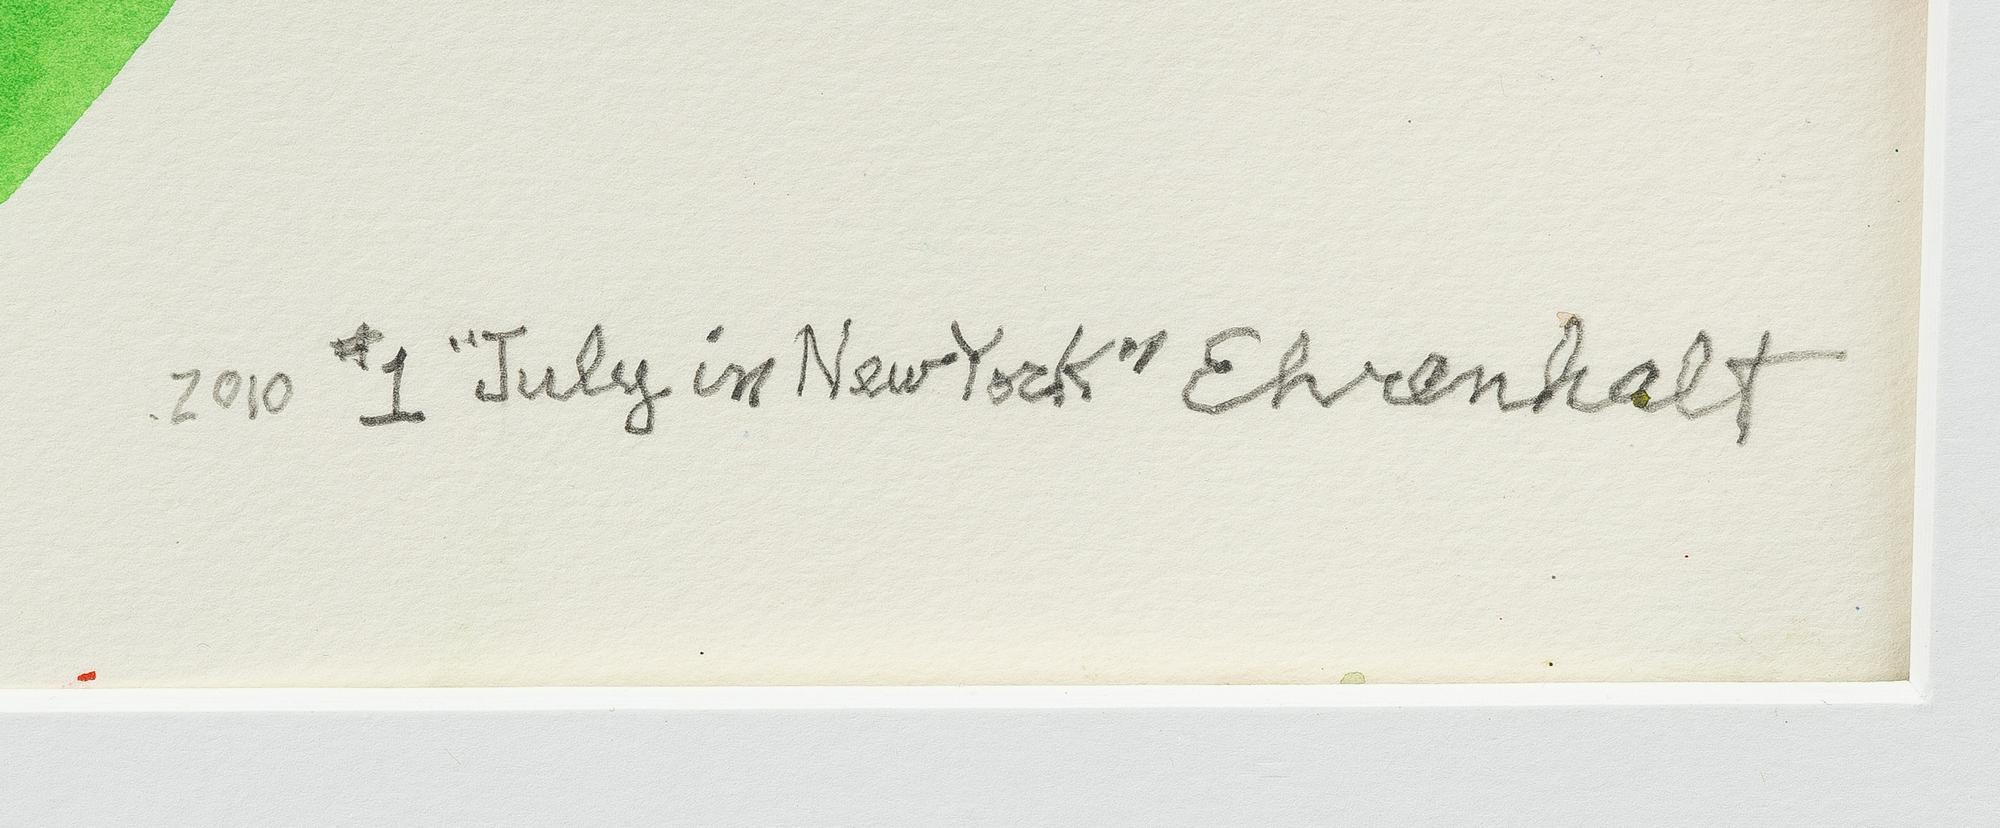 2010 #1 "July in New York" Ehrenhalt